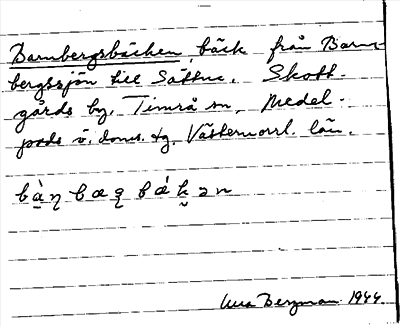 Barnbergsbäcken, bäck från Barn-
bergssjön till Sättna, Skott-
gårds by, Timrå sn, Medel-
pads ö. doms. tg. Västernorrl. län.
Bergman 1944